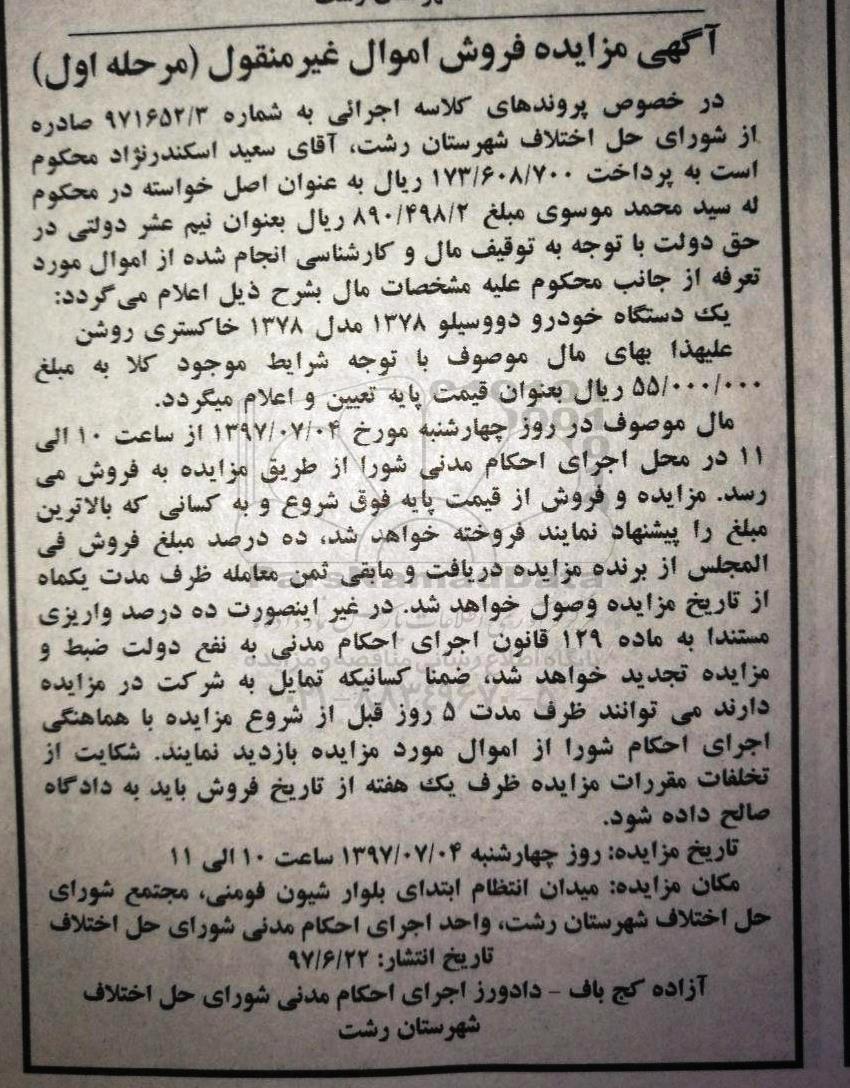 آگهی مزایده فروش اموال غیرمنقول (مرحله اول)
در خصوص پروندهای کلاسه اجرائی به شماره ۹۷۱۶۵۲/۳ صادره
از شورای حل اختلاف شهرستان رشت، آقای سعید اسکندرنژاد محکوم
است به پرداخت ۱۷۳/۶۰۸/۷۰۰ ریال به عنوان اصل خواسته در محکوم
له سید محمد موسوی مبلغ ۸۹۰/۴۹۸/۲ ریال بعنوان نیم عشر دولتی در
حق دولت با توجه به توقیف مال و کارشناسی انجام شده از اموال مورد
تعرفه از جانب محکوم علیه مشخصات مال بشرح ذیل اعلام می گردد:
یک دستگاه خودرو دووسیلو ۱۳۷۸ مدل ۱۳۷۸ خاکستری روشن
علیهذا بهای مال موصوف با توجه شرایط موجود کلا به مبلغ
۵۵/۰۰۰/۰۰۰ ریال بعنوان قیمت پایه تعیین و اعلام میگردد.
مال موصوف در روز چهارشنبه مورخ ۱۳۹۷/۰۷/۰۴ از ساعت ۱۰ الی
۱۱ در محل اجرای احکام مدنی شورا از طریق مزایده به فروش می
رسد. مزایده و فروش از قیمت پایه فوق شروع و به کسانی که بالاترین
مبلغ را پیشنهاد نمایند فروخته خواهد شد، ده درصد مبلغ فروش فی
المجلس از برنده مزایده دریافت و مابقی ثمن معامله ظرف مدت یکماه
از تاریخ مزایده وصول خواهد شد. در غیر اینصورت ده درصد واریزی
مستندا به ماده ۱۲۹ قانون اجرای احکام مدنی به نفع دولت ضبط و
مزایده تجدید خواهد شد، ضمنا کسانیکه تمایل به شرکت در مزایده
دارند می توانند ظرف مدت ۵ روز قبل از شروع مزایده با هماهنگی
اجرای احکام شورا از اموال مورد مزایده بازدید نمایند. شکایت از
تخلفات مقررات مزایده ظرف یک هفته از تاریخ فروش باید به دادگاه
صالح داده شود.
تاریخ مزایده: روز چهارشنبه ۱۳۹۷/۰۷/۰۴ ساعت ۱۰ الی ۱۱
مکان مزایده: میدان انتظام ابتدای بلوار شیون فومنی، مجتمع شورای
حل اختلاف شهرستان رشت، واحد اجرای احکام مدنی شورای حل اختلاف
تاریخ انتشار: ۹۷/۶/۲۲
آزاده کج باف - دادورز اجرای احکام مدنی شورای حل اختلاف
شهرستان رشت